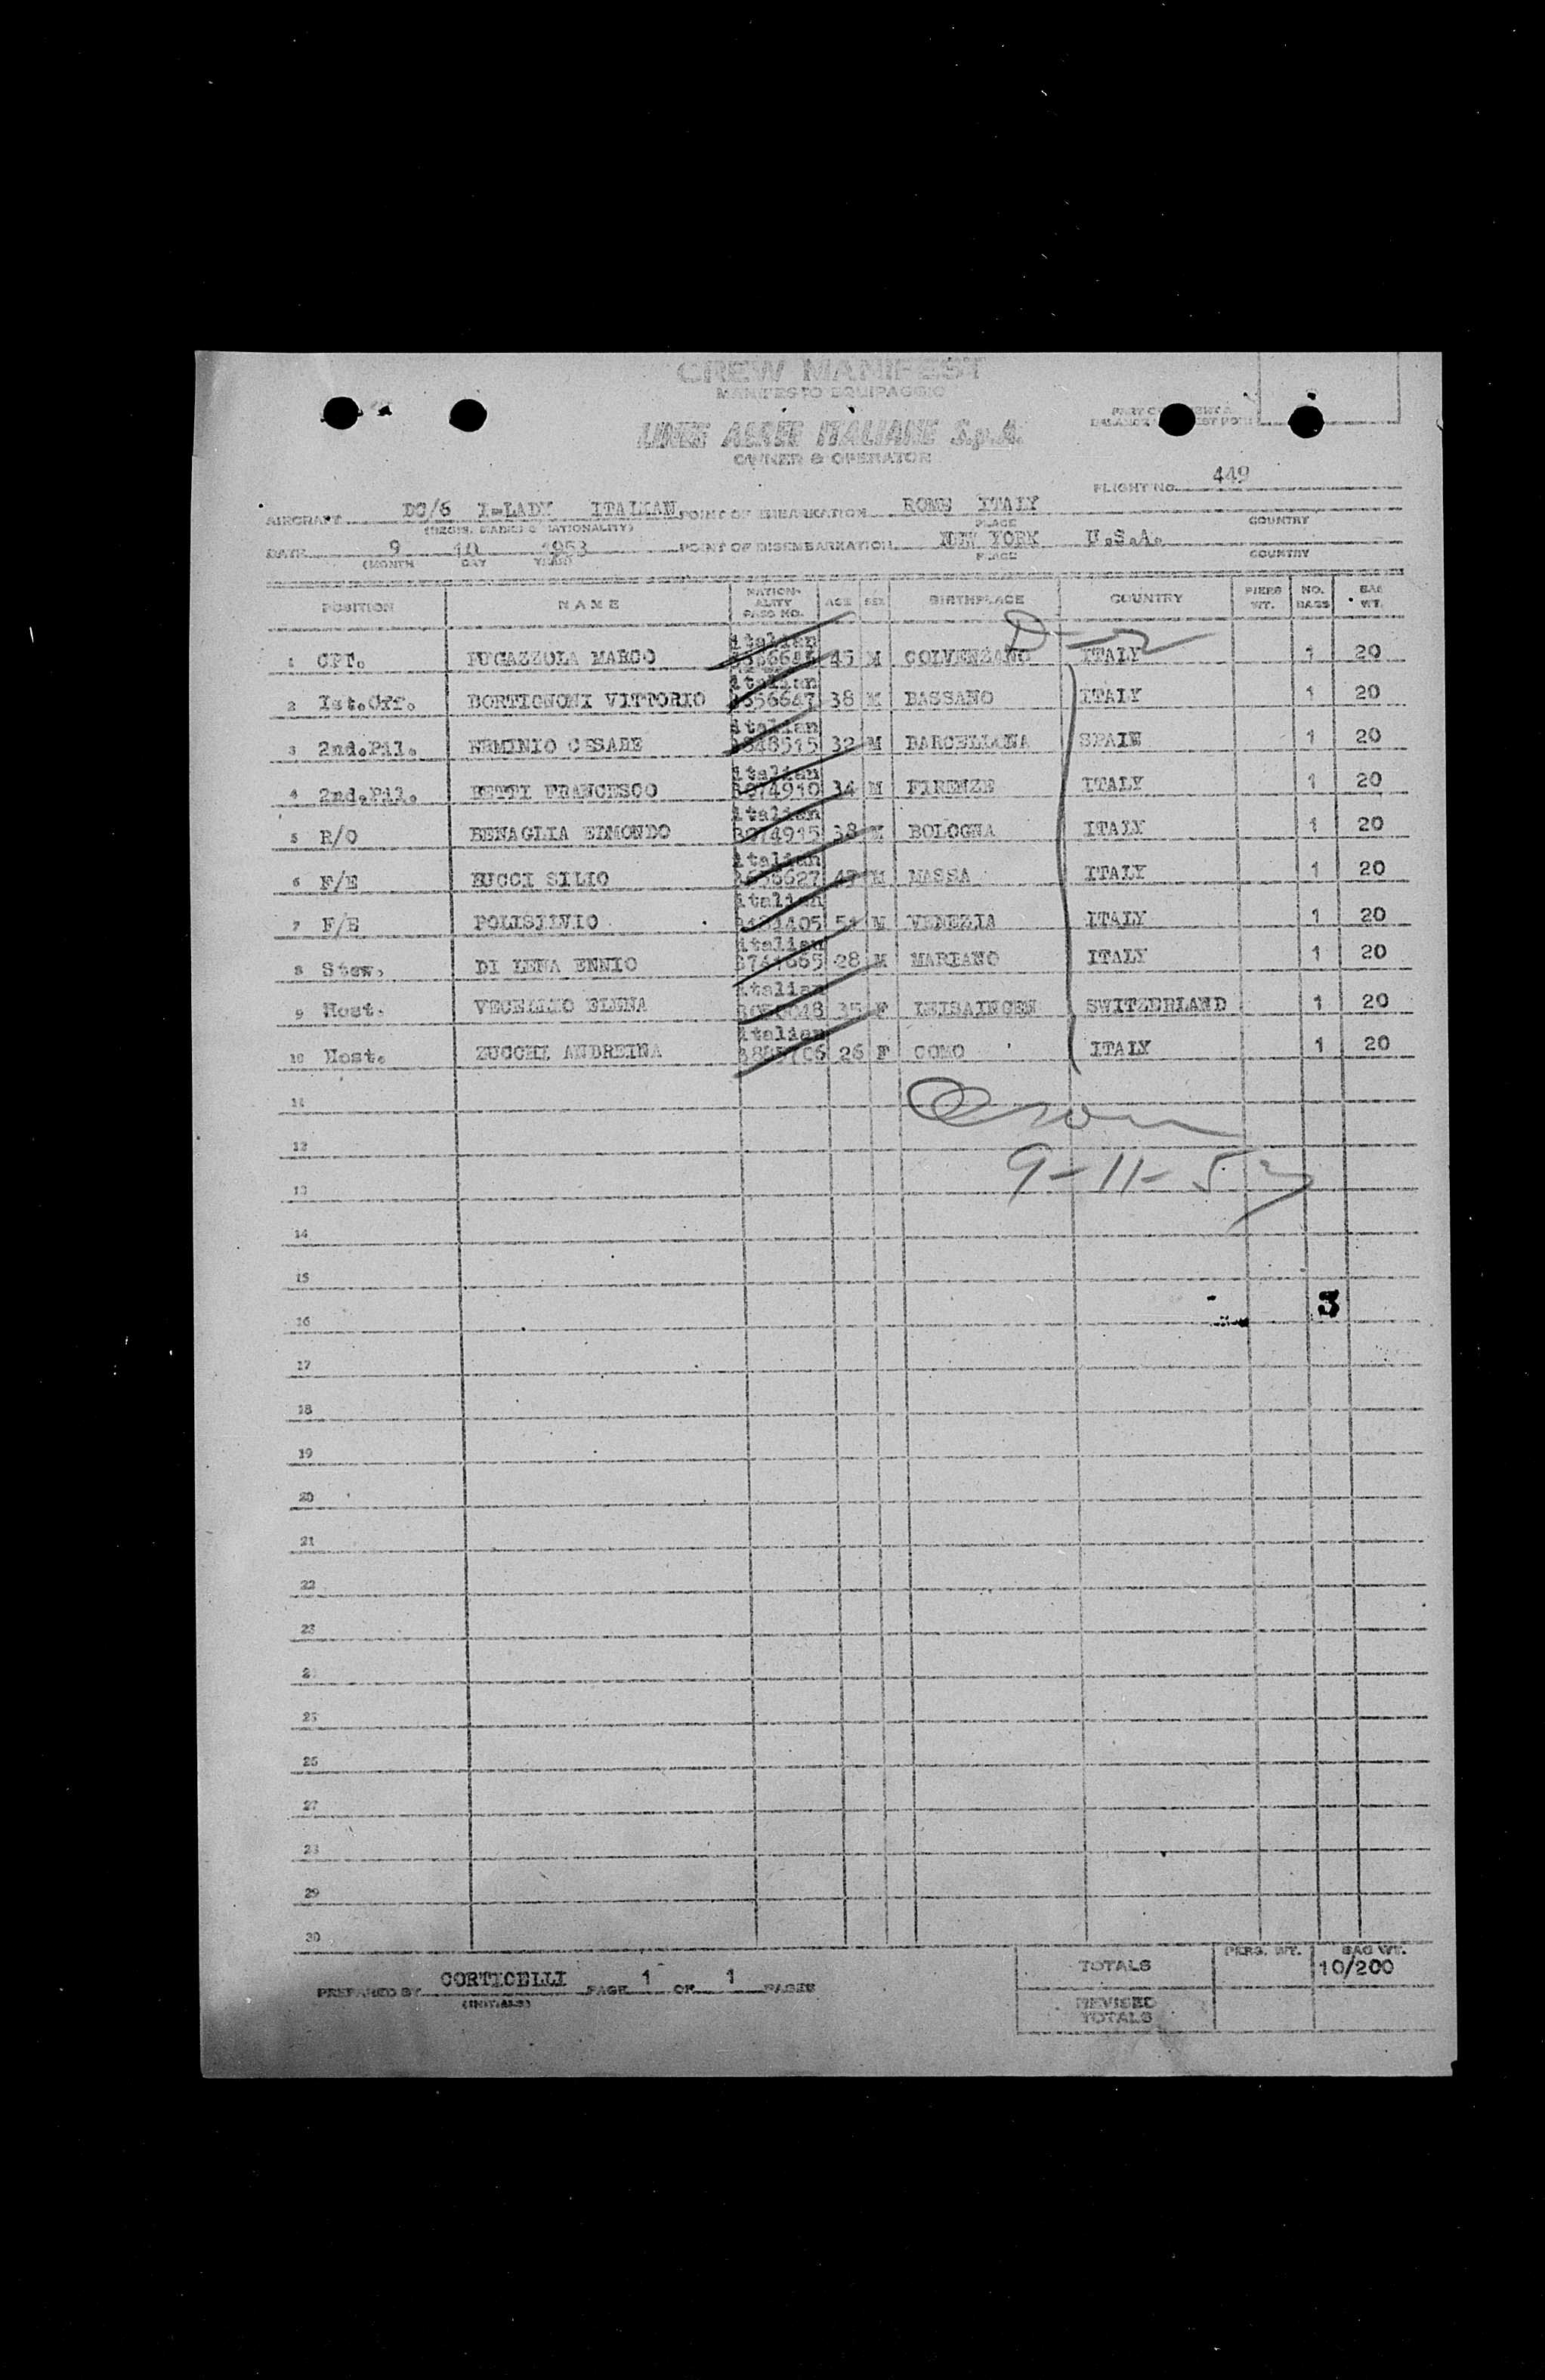 CREW MANIFEST
MANIFESTO EQUIPAGGIO
LINEE AEREE ITALIANE S.p.A.
OWNER & OPERATOR
FLIGHT NO. 449
AIRCRAFT DC/6 I-LADY ITALIAN POINT OF EMBARKATION ROME ITALY
(REGIS. MARKS & NATIONALITY) PLACE COUNTRY
DATE 9 10 1953 POINT OF DISEMBARKATION NEW YORK U.S.A.
(MONTH DAY YEAR) PLACE COUNTRY
POSITION NAME NATION-ALITY PASS NO. AGE SEX BIRTHPLACE COUNTRY PIERS WT. NO. BAGS BAG WT.
1 CPT. FUGAZZOLA MARCO italian 45 M COLVENZANO ITALY 1 20
2 Ist.Off. BORTIGNONI VITTORIO italian 3656647 38 M BASSANO ITALY 1 20
3 2nd.Pil. ERMINIO CESARE italian 3848515 32 M BARCELLANA SPAIN 1 20
4 2nd.Pil. BETTI FRANCESCO italian 3074910 34 M FIRENZE ITALY 1 20
5 R/O BENAGLIA EDMONDO italian 3074915 38 M BOLOGNA ITALY 1 20
6 F/E BUCCI SILIO italian M MASSA ITALY 1 20
7 F/E POLISILVIO italian 51 M VENEZIA ITALY 1 20
8 Stew. DI LENA ENNIO italian 28 M MARIANO ITALY 1 20
9 Host. VECELLIO ELENA italian 35 F LEISAINGEN SWITZERLAND 1 20
10 Host. ZUCCHI ANDREINA italian 26 F COMO ITALY 1 20
11
12
9-11-53
13
14
15
3
16
17
18
19
20
21
22
23
24
25
26
27
28
29
30
PERS. WT. BAG WT.
TOTALS 10/200
PREPARED BY CORTICELLI PAGE 1 OF 1 PAGES
(INITIALS)
REVISED TOTALS